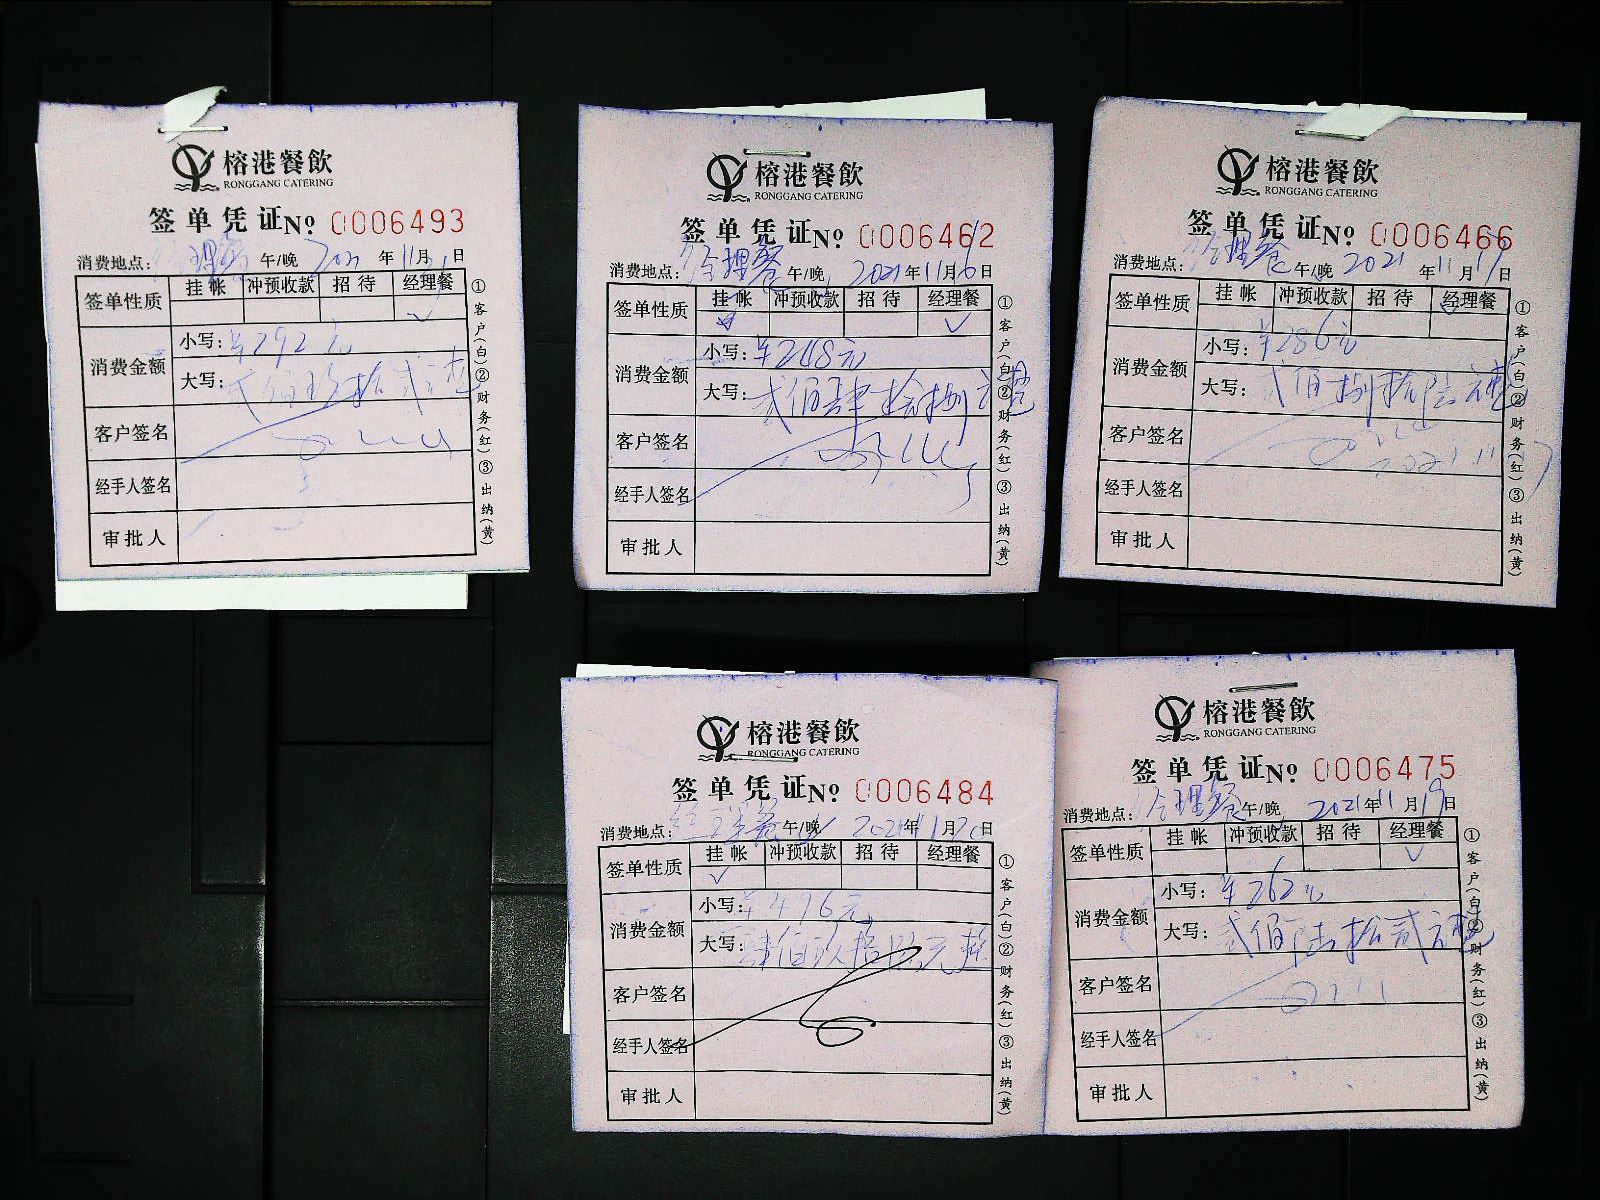 榕港餐飲
RONGGANG CATERING
签单凭证№ 0006493
消费地点: 理餐 午/晚 2021年11月 日
签单性质 挂帐 冲预收款 招待 经理餐
✓
消费金额
小写:¥292元
大写:贰佰玖拾贰元整
客户签名
经手人签名
审批人
①客户(白)②财务(红)③出纳(黄)
榕港餐飲
RONGGANG CATERING
签单凭证№ 0006462
消费地点:经理餐 午/晚 2021年11月16日
签单性质 挂帐 冲预收款 招待 经理餐
✓
消费金额
小写:¥248元
大写:贰佰肆拾捌元整
客户签名
经手人签名
审批人
①客户(白)②财务(红)③出纳(黄)
榕港餐飲
RONGGANG CATERING
签单凭证№ 0006466
消费地点:经理餐 午/晚 2021年11月17日
签单性质 挂帐 冲预收款 招待 经理餐
消费金额
小写:¥286元
大写:贰佰捌拾陆元整
客户签名 2021.11.17
经手人签名
审批人
①客户(白)②财务(红)③出纳(黄)
榕港餐飲
RONGGANG CATERING
签单凭证№ 0006484
消费地点:经理餐 午/晚 2021年11月20日
签单性质 挂帐 冲预收款 招待 经理餐
✓
消费金额
小写:¥496元
大写:肆佰玖拾陆元整
客户签名
经手人签名
审批人
①客户(白)②财务(红)③出纳(黄)
榕港餐飲
RONGGANG CATERING
签单凭证№ 0006475
消费地点:经理餐 午/晚 2021年11月19日
签单性质 挂帐 冲预收款 招待 经理餐
✓
消费金额
小写:¥262元
大写:贰佰陆拾贰元整
客户签名
经手人签名
审批人
①客户(白)②财务(红)③出纳(黄)